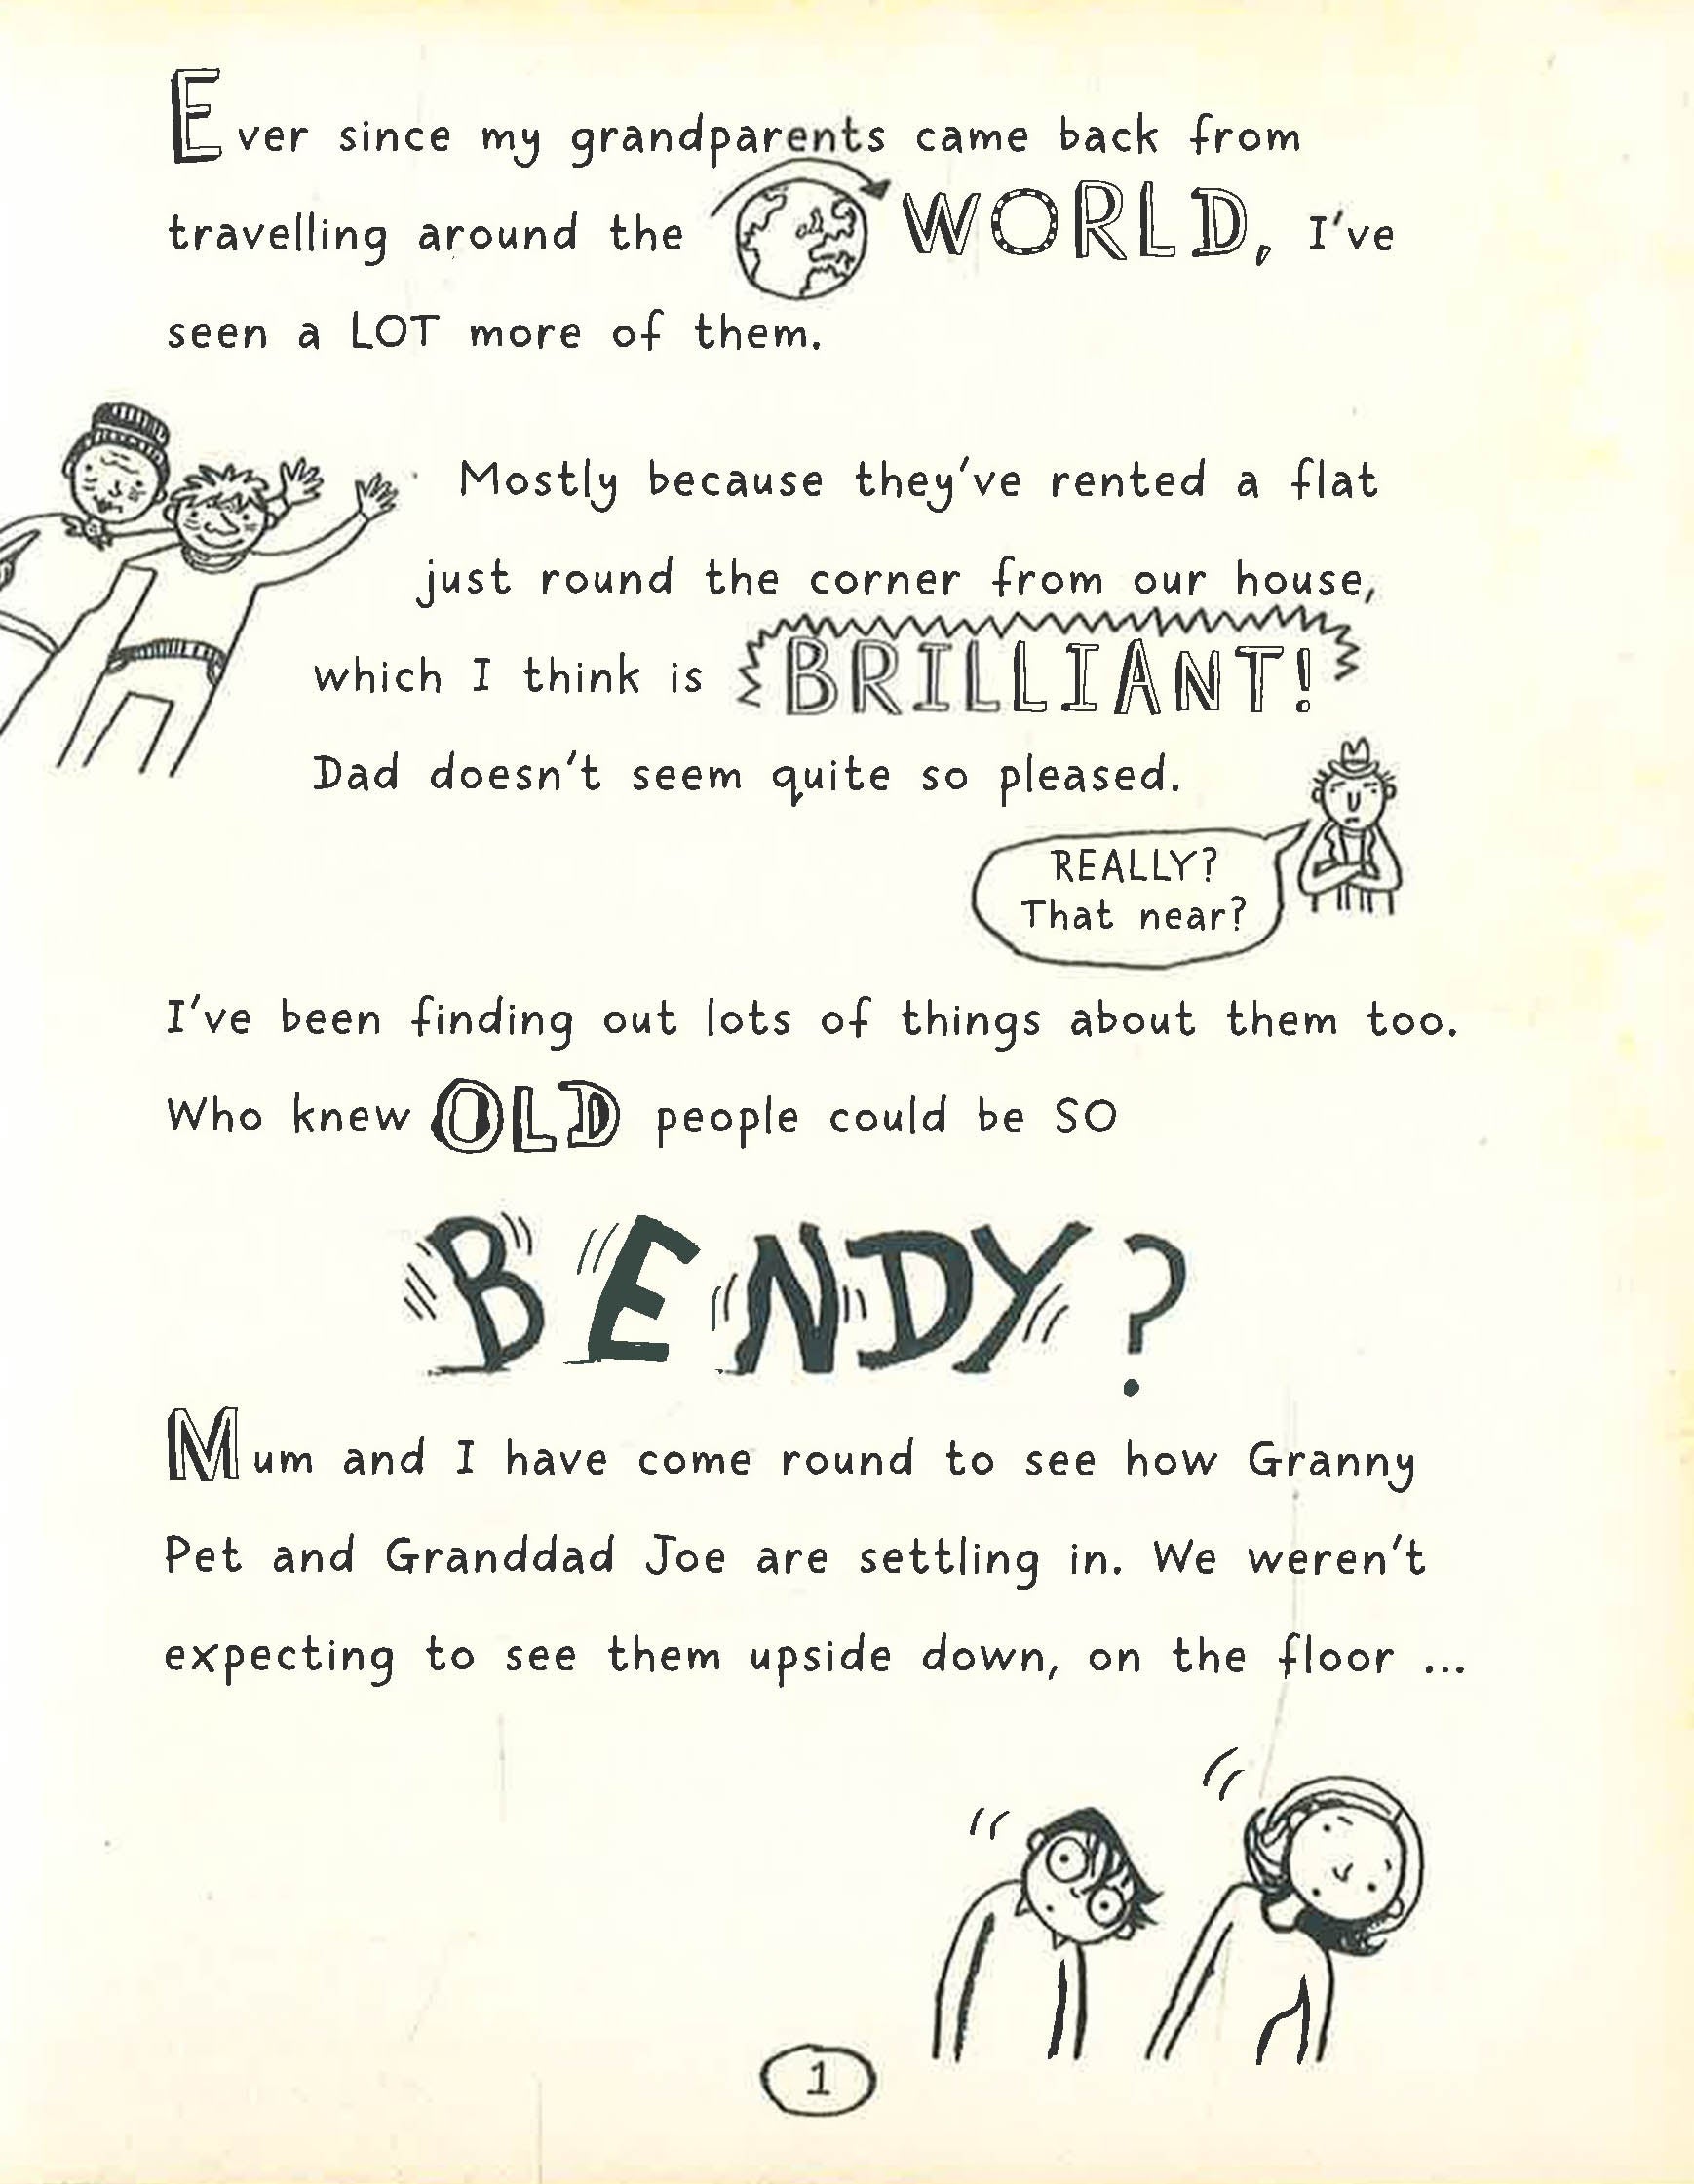 Ever since my grandparents came back from
travelling around the WORLD, I've
seen a LOT more of them.
Mostly because they've rented a flat
just round the corner from our house,
which I think is BRILLIANT!
Dad doesn't seem quite so pleased.
REALLY?
That near?
I've been finding out lots of things about them too.
Who knew OLD people could be SO
BENDY?
Mum and I have come round to see how Granny
Pet and Granddad Joe are settling in. We weren't
expecting to see them upside down, on the floor ...
1